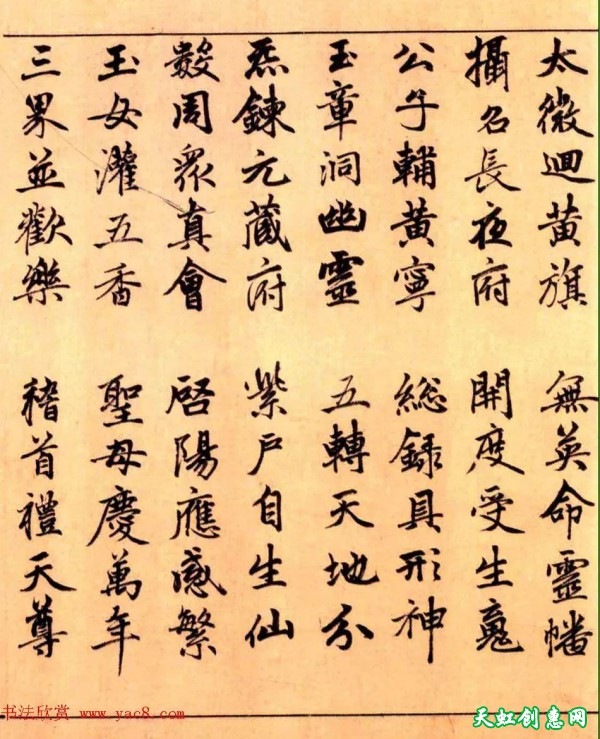 太微迴黃旗 無英命靈幡
攝名長夜府 開度受生魂
公子輔黃寧 総録具形神
玉章洞幽靈 五轉天地分
炁鍊元藏府 紫戶自生仙
數周眾真會 啓陽應感繁
玉女灌五香 聖母慶萬年
三界並歡樂 稽首禮天尊
书法欣赏 www.yac8.com
天虹创惠网